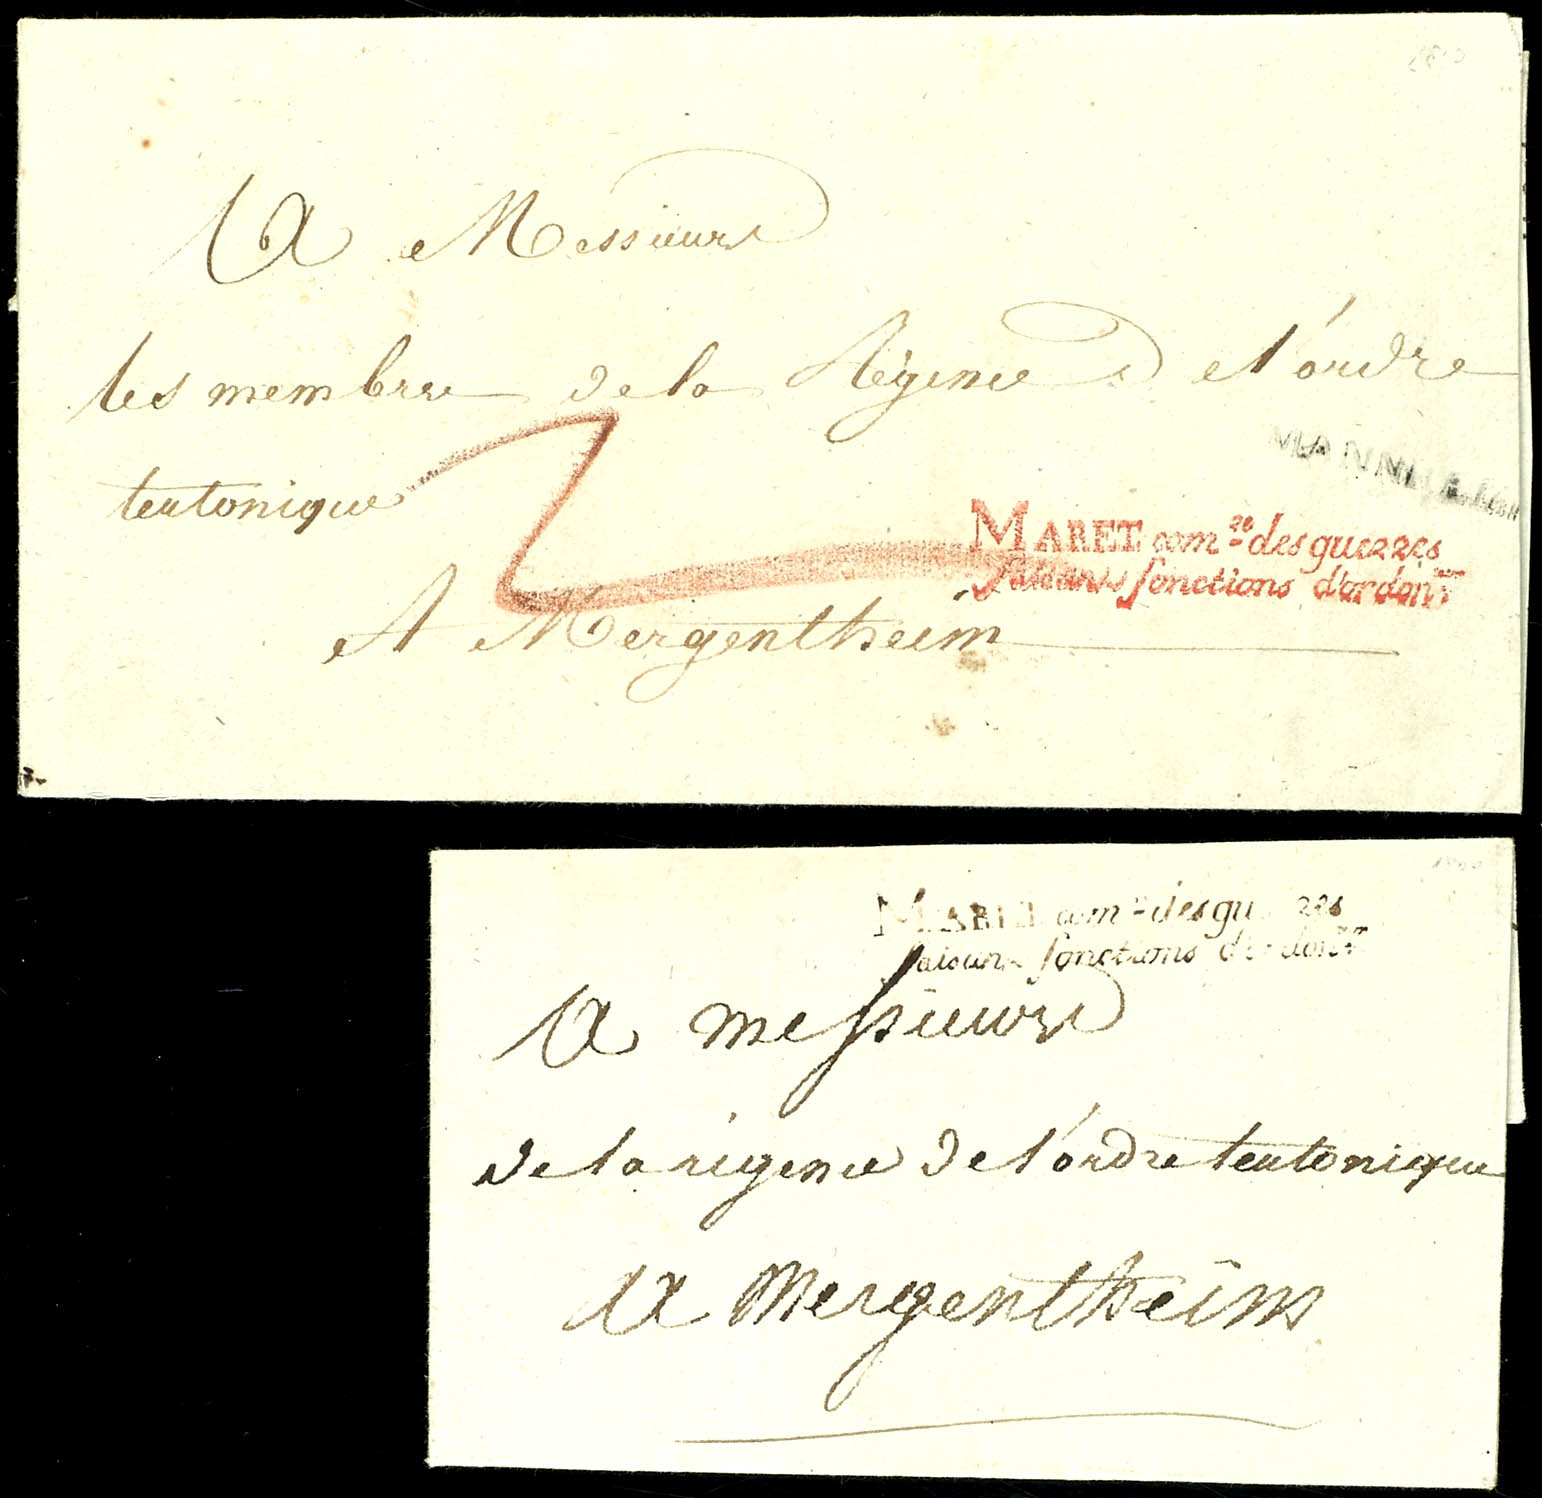 A Messieurs
les membres de la Régence de l'ordre
teutonique
MANNHEIM
MARET com.re des guerres
faisant fonctions d'ordonr
A Mergentheim
MARET com.re des gu res
faisant fonctions d'ordonr
A messieurs
de la régence de l'ordre teutonique
A Mergentheim